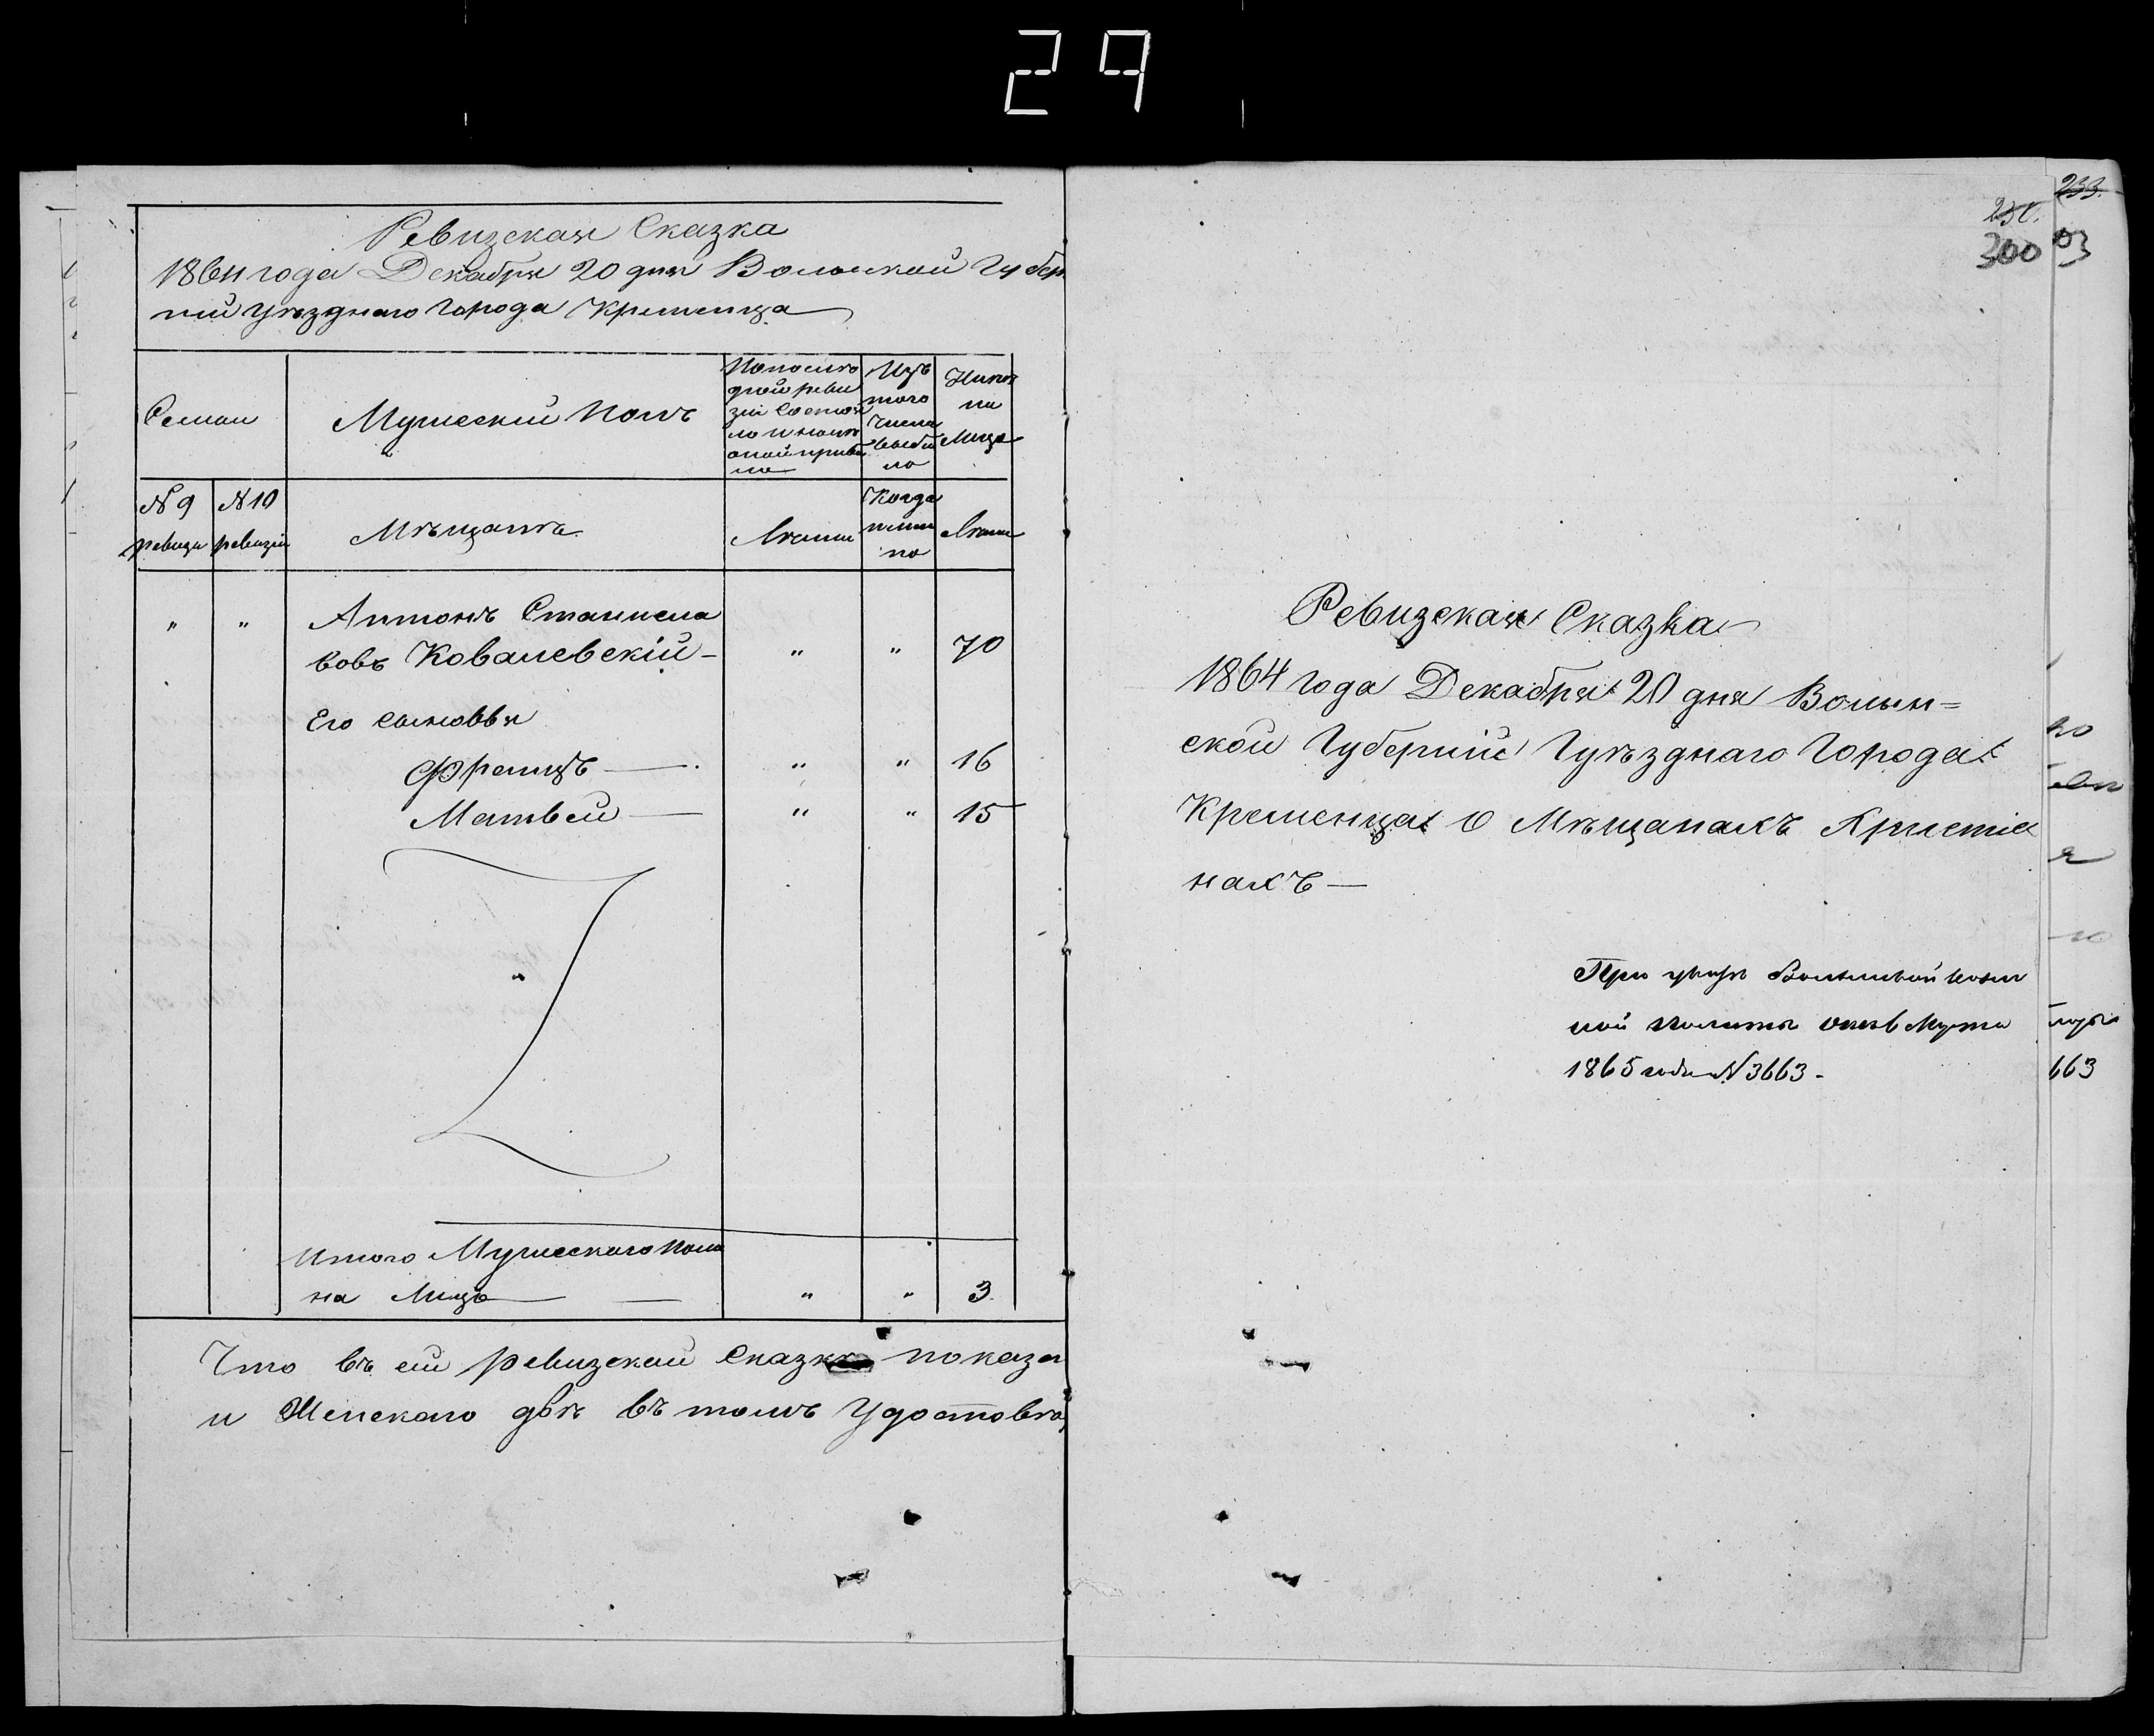 29
Ревизская Сказка
1864 года Декабря 20 дня Волынской Губер
ніи уѣзднаго Города Кременца
Семьи
Мужескій Полъ
По послѣ
дней реви
зіи состоя
ло и послѣ
оной прибы
ло
Изъ
того
числа
выбы
ло
Нынѣ
на
Лицо
№ 9 ревизіи
№ 10 ревизіи
Мѣщанъ
Лѣта
Когда
именно
Лѣта
" " Антонъ Станисла
вовъ Ковалевскій - " " 70
Его сыновья
Францъ — " " 16
Матвей — " " 15
Итого Мужескаго пола
на Лицо — " " 3
Что въ сей ревизской сказкѣ показа
и Женскаго двѣ въ томъ Удостовѣ
231.
300
233.
03
Ревизская Сказка
1864 года Декабря 20 дня Волын=
ской Губерніи Гуѣзднаго Города
Кременца о Мѣщанахъ Христіа
нахъ —
При указѣ Волынской казен
ной палаты отъ Марта
1865 года № 3663 -
663